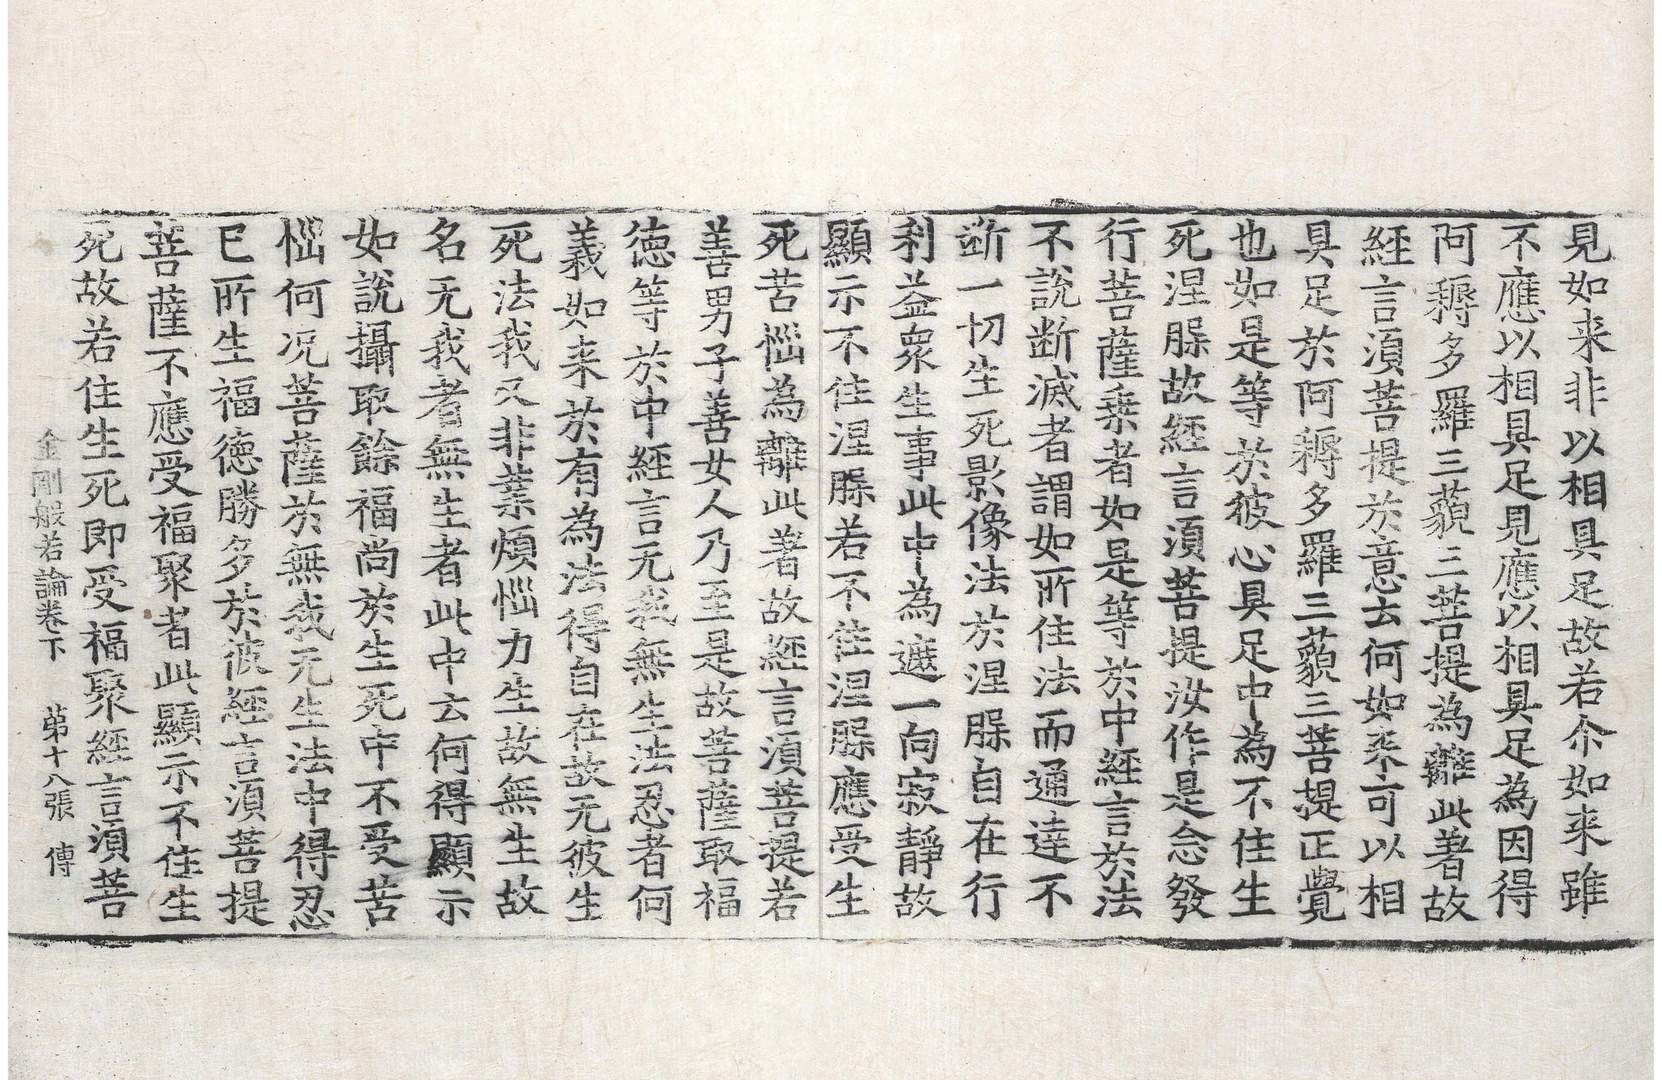 見如来非以相具足故若尒如来雖
不應以相具足見應以相具足為因得
阿耨多羅三藐三菩提為離此著故
經言湏菩提於意云何如来可以相
具足於阿耨多羅三藐三菩提正覺
也如是等於彼心具足中為不住生
死涅槃故經言湏菩提汝作是念發
行菩薩乗者如是等於中經言於法
不說断滅者謂如所住法而通達不
断一切生死影像法於涅槃自在行
利益衆生事此中為遮一向寂靜故
顯示不住涅槃若不住涅槃應受生
死苦惱為離此著故經言湏菩提若
善男子善女人乃至是故菩薩取福
徳等於中經言无我無生法忍者何
義如来於有為法得自在故无彼生
死法我又非業煩惱力生故無生故
名无我者無生者此中云何得顯示
如說攝取餘福尚於生死中不受苦
惱何况菩薩於無我无生法中得忍
已所生福徳勝多於彼經言湏菩提
菩薩不應受福聚者此顯示不住生
死故若住生死即受福聚經言湏菩
金剛般若論卷下 第十八張 傳